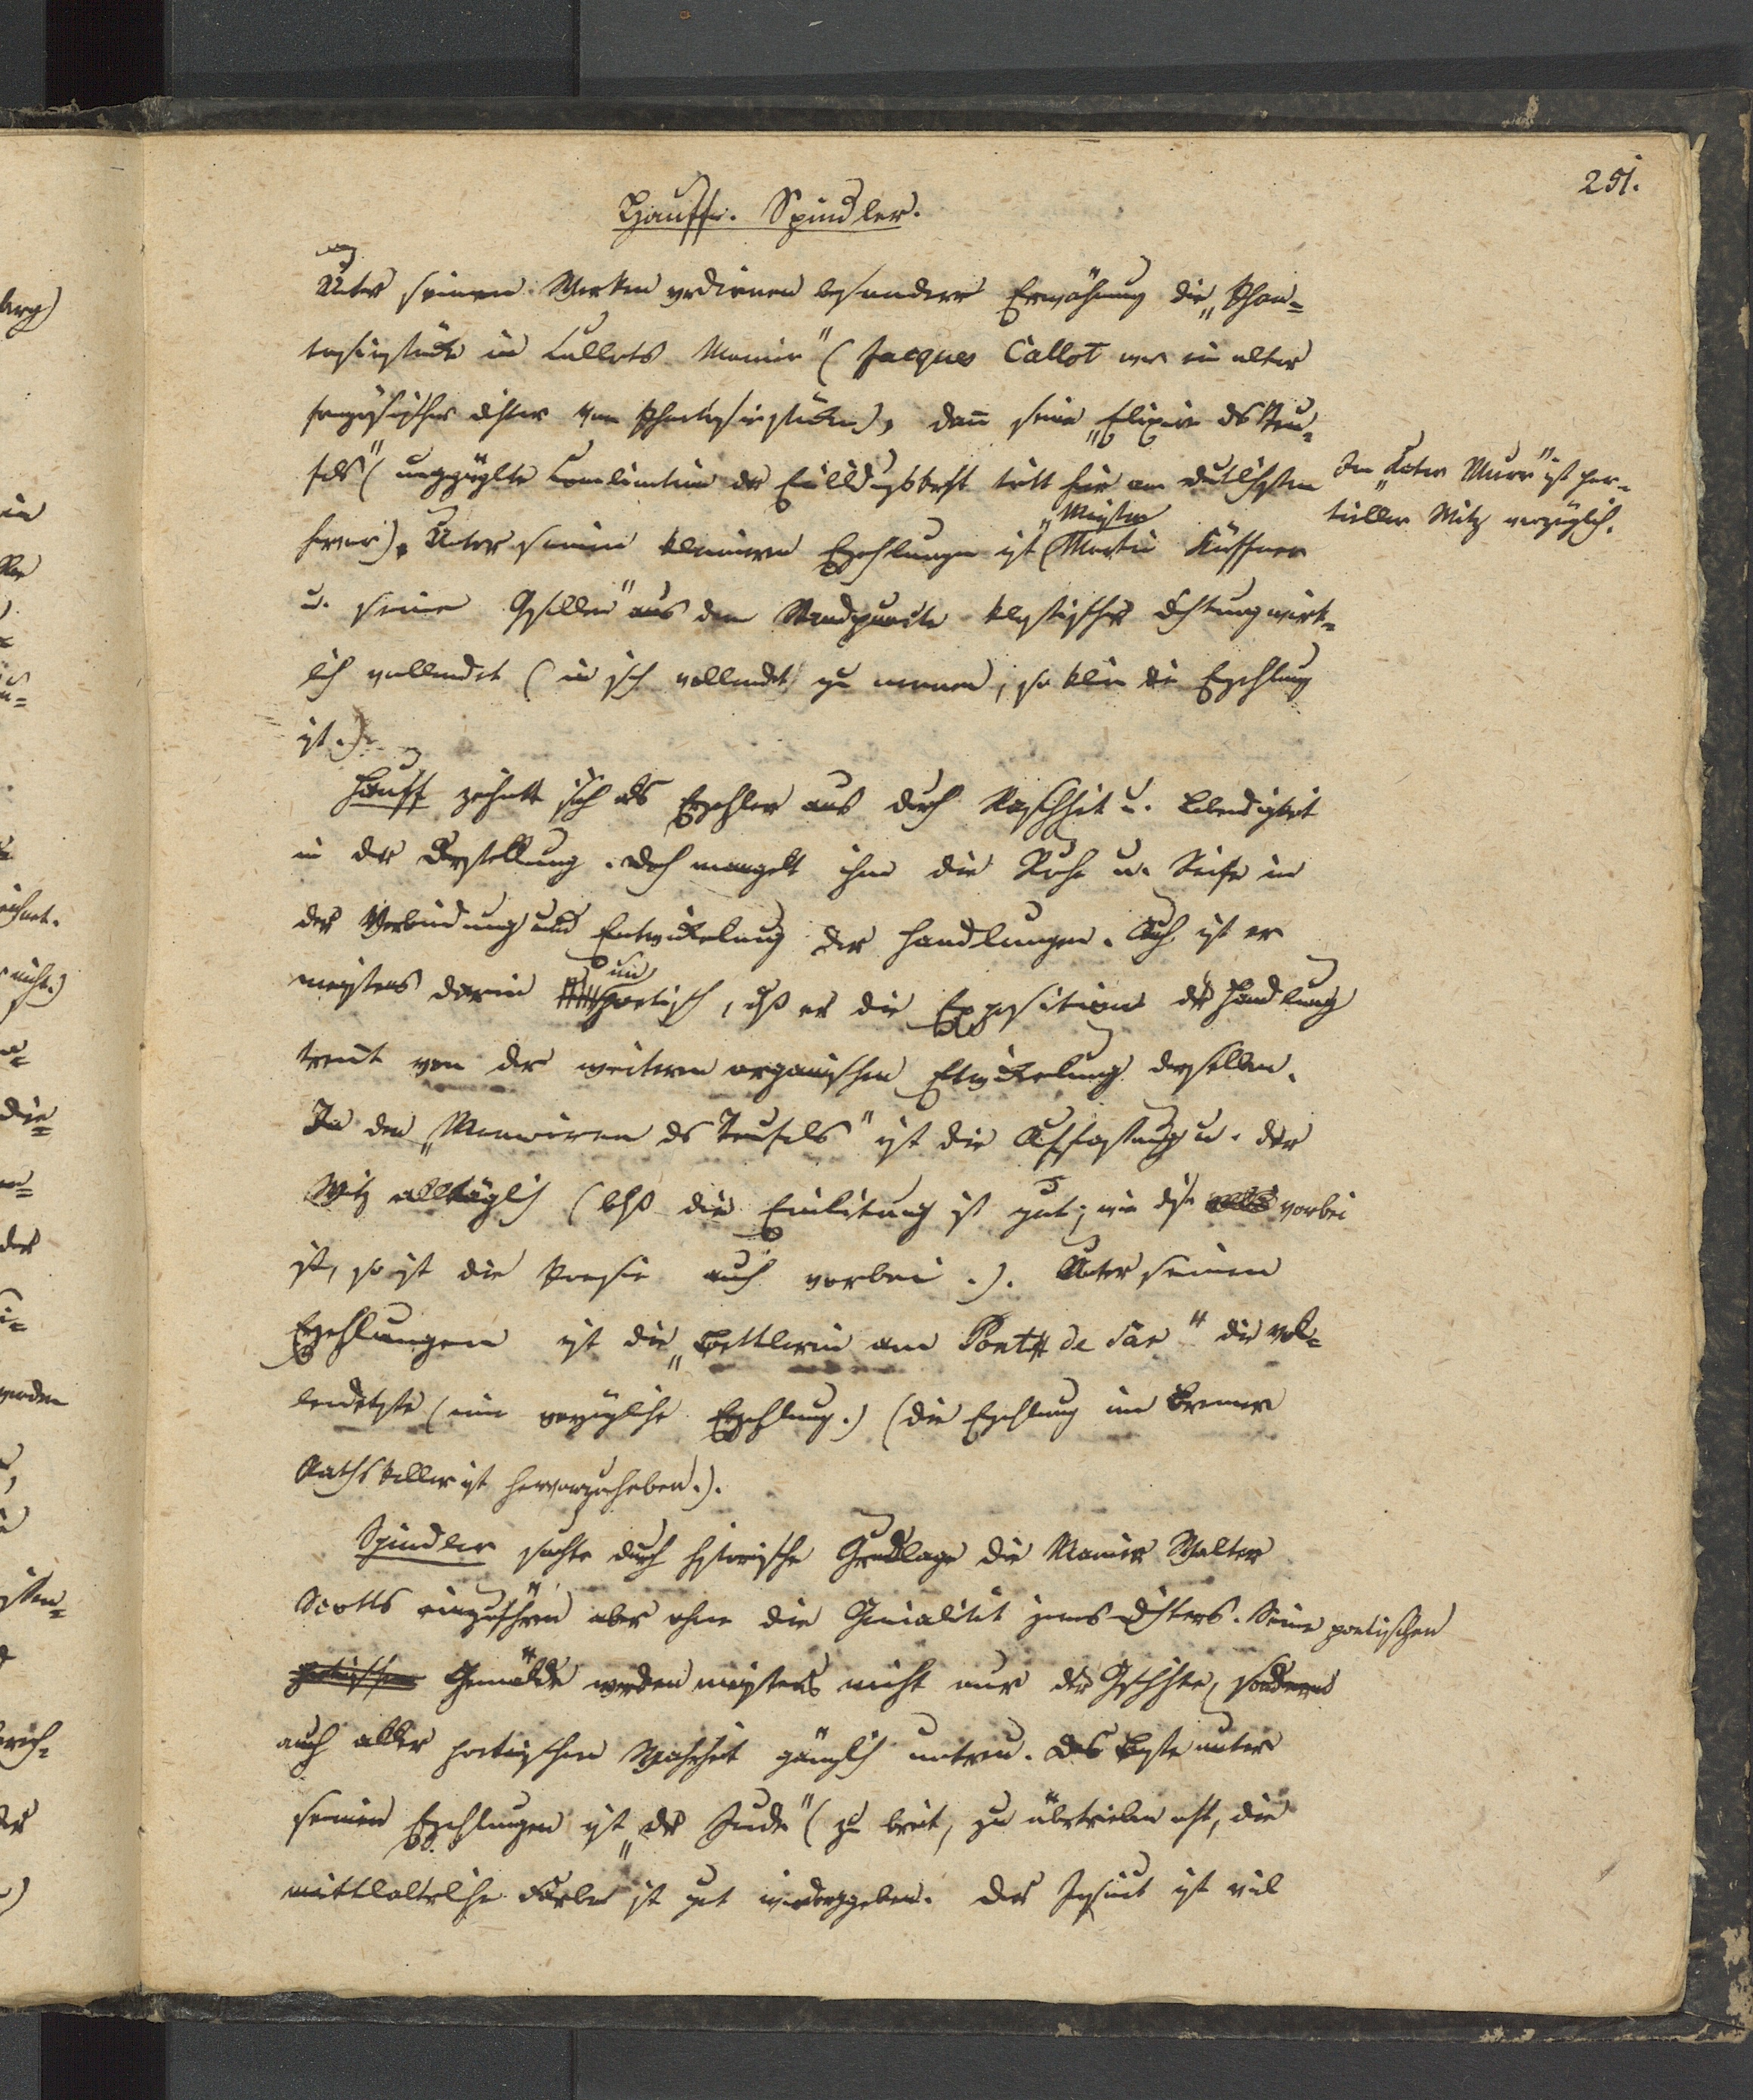 251.
Hauff. Spindler.
Unter seinen Werken verdienen besondere Erwähnung die „Phan-
tasiestücke in Callots Manier" (Jacques Callot war ein alter
französischer Dichter von Phantasiestücken), dann seine „Elixire ds Teu-
fels" (ungezügelte Combination der Einbildungskraft tritt hier am deutlichsten
hervor). Unter seinen kleineren Erzehlungen ist „Meister Martin Küffner
u. seine Gesellen" aus dem Standpuncte klastischer Dichtung wirk-
lich vollendet (in sich vollendet zu nennen, so klein die Erzehlung
ist.).
Im „Kater Murr" ist par-
tieller Witz vorzüglich.
Hauff zeichnete sich als Erzehler aus durch Raschheit u. Lebendigkeit
in der Darstellung. Doch mangelt ihm die Ruhe u. Reife in
der Verbindung und Entwickelung der Handlungen. Auch ist er
meistens darin unpoetisch, daß er die Exposition der Handlung
trent von der weitern organischen Entwickelung derselben.
In den „Memoiren ds Teufels" ist die Auffassung u. der
Witz alltäglich (bloß die Einleitung ist gut; wie diese vorbei
ist, so ist die Poesie auch vorbei.). Unter seinen
Erzehlungen ist die „Bettlerin am Pont de Sar" die vol-
lendetste (eine vorzügliche Erzehlung.) (die Erzehlung im Bremer
Rathskeller ist hervorzuheben.).
Spindler suchte durch historische Grundlage die Manier Walter
Scotts einzuführen aber ohne die Genialität jenes Dichters. Seine poetischen
poetischen Gemälde werden meistens nicht nur der Geschichte, sondern
auch aller poetischen Wahrheit gänzlich untreu. Das Beste unter
seinen Erzehlungen ist „der Jude" (zu breit, zu übertrieben oft, die
mittelalterliche Farbe ist gut wiedergegeben. Der Jesuit ist viel